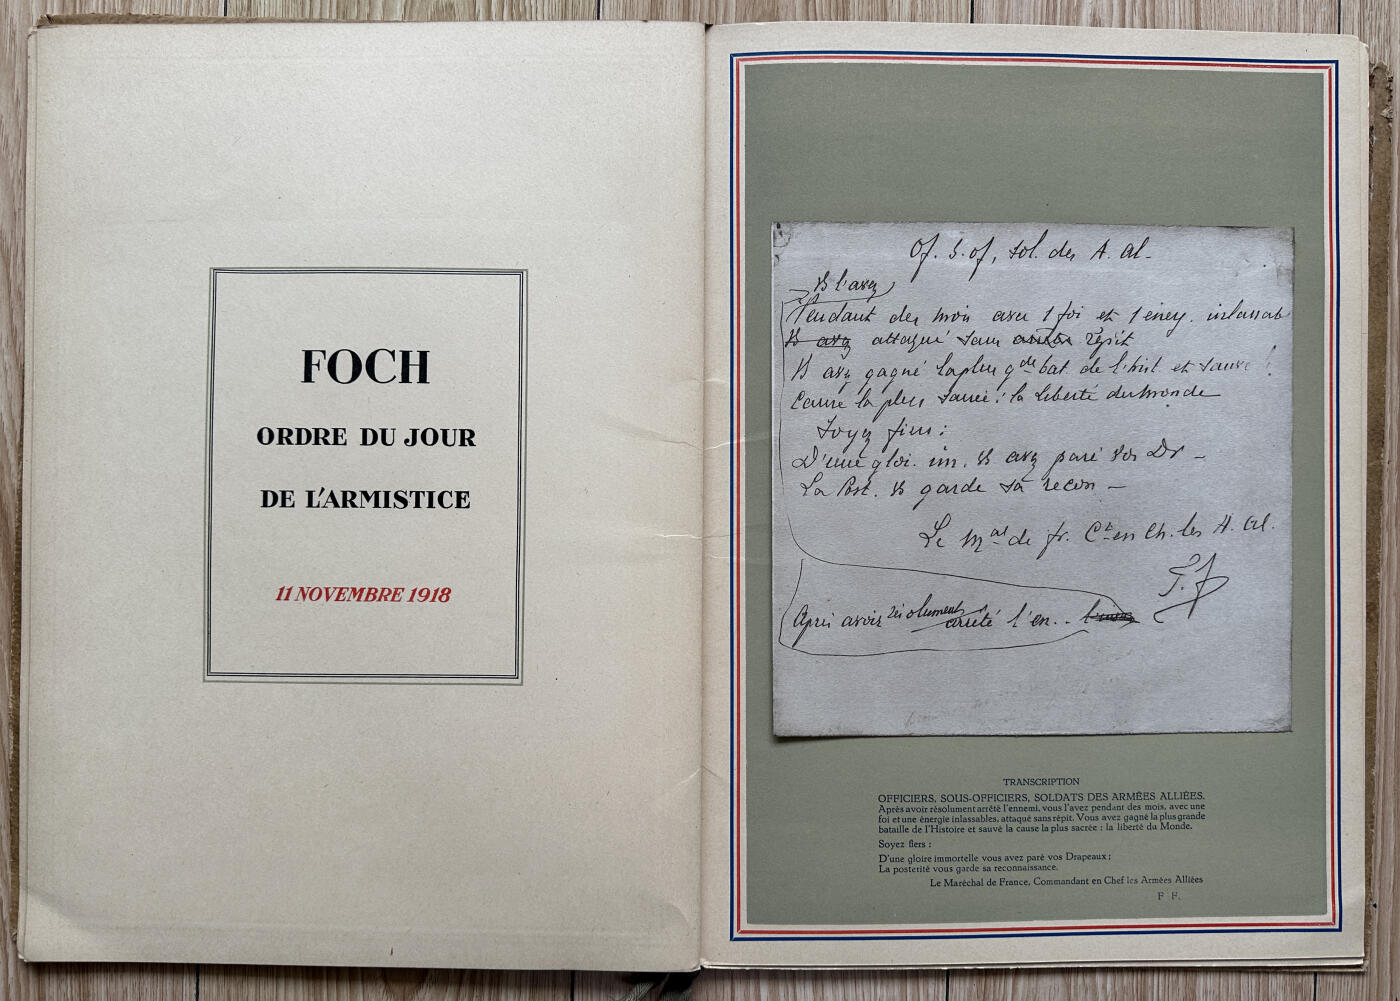 FOCH
ORDRE DU JOUR
DE L'ARMISTICE
11 NOVEMBRE 1918
Of. S. of, sol. des A. Al.
Vs l'avez
Pendant des mois avec 1 foi et 1 énerg. inlassab
Vs avez attaqué sans répit
Vs avez gagné la plus gde bat. de l'hist. et sauvé l
cause la plus sacrée : la liberté du monde
Soyez fiers :
D'une gloi. im. vs avez paré vos Dr –
La Post. vs garde sa recon –
Le Mal de fr. Ct en Ch. les A. Al.
F. F
Après avoir résolument arrêté l'en..
TRANSCRIPTION
OFFICIERS, SOUS-OFFICIERS, SOLDATS DES ARMÉES ALLIÉES.
Après avoir résolument arrêté l'ennemi, vous l'avez pendant des mois, avec une
foi et une énergie inlassables, attaqué sans répit. Vous avez gagné la plus grande
bataille de l'Histoire et sauvé la cause la plus sacrée : la liberté du Monde.
Soyez fiers :
D'une gloire immortelle vous avez paré vos Drapeaux ;
La posterité vous garde sa reconnaissance.
Le Maréchal de France, Commandant en Chef les Armées Alliées
F F.